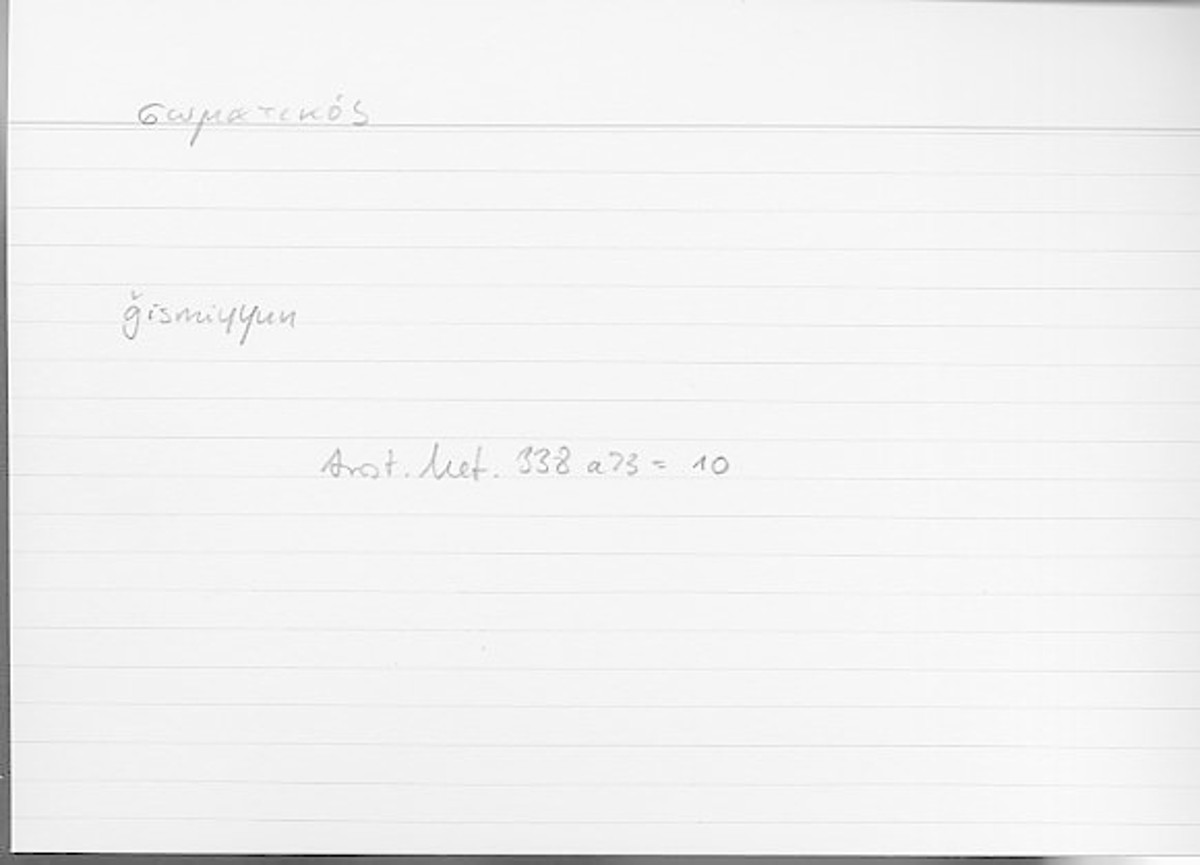 σωματικός
ǧismiyyun
Arist. Met. 338 a23 = 10